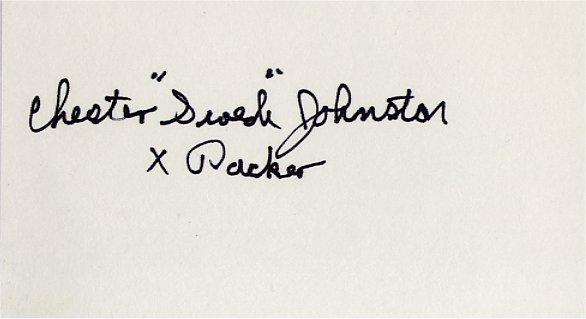 Chester "Swede" Johnston
X Packer